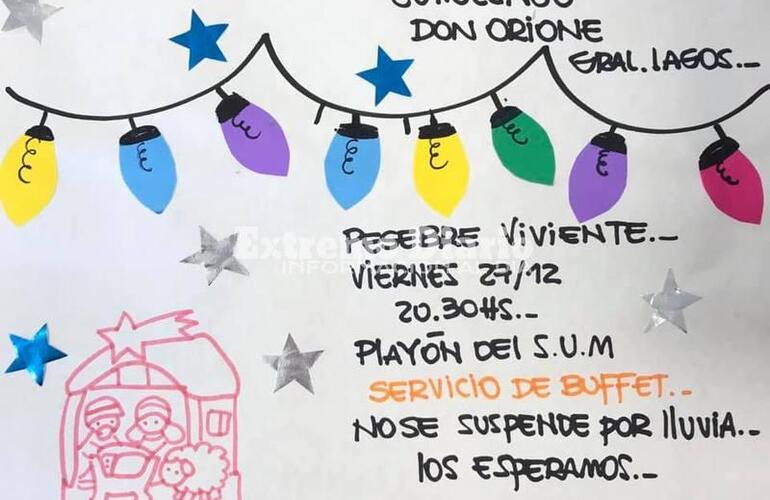 DON ORIONE
GRAL. LAGOS._
PESEBRE VIVIENTE._
VIERNES 27/12
20.30HS._
PLAYÓN DEL S.U.M
SERVICIO DE BUFFET._
NO SE SUSPENDE POR LLUVIA._
LOS ESPERAMOS._
Extremo Diario